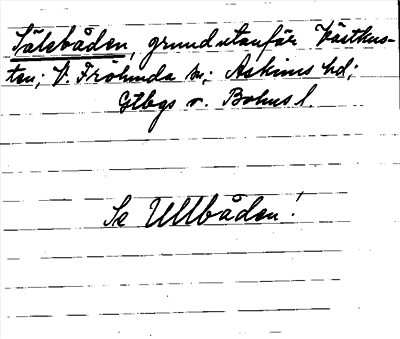 Sälsbåden, grund utanför Västkus-
ten; V. Frölunda sn; Askims hd;
Gtbgs o. Bohusl.
Se Ullbåden!